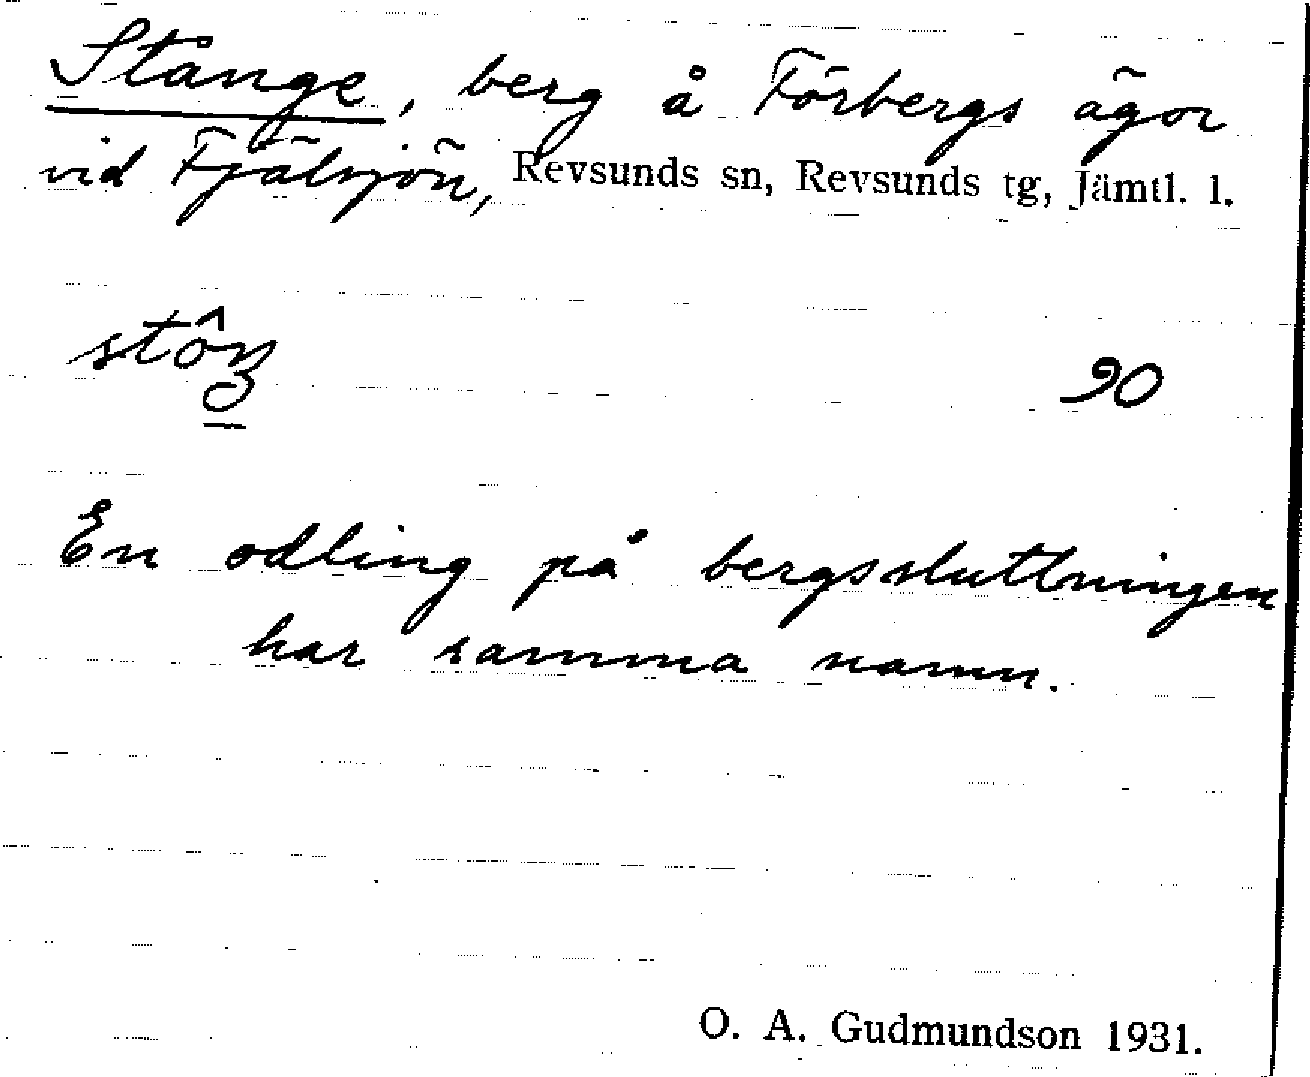 Stånge, berg å Förbergs ägor
vid Fjälsjön, Revsunds sn, Revsunds tg, Jämtl. l.
90
En odling på bergssluttningen
har samma namn.
O. A. Gudmundson 1931.